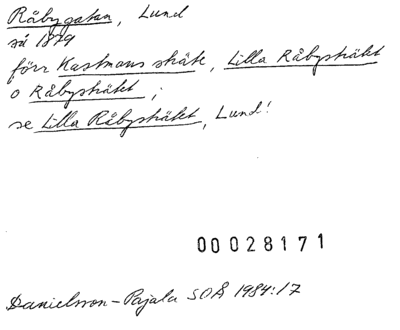 Råbygatan, Lund
så 1879
förr Kastmans sträte, Lilla Råbysträtet
o Råbysträtet;
se Lilla Råbysträtet, Lund!
00028171
Danielsson-Pajala SOÅ 1984:17